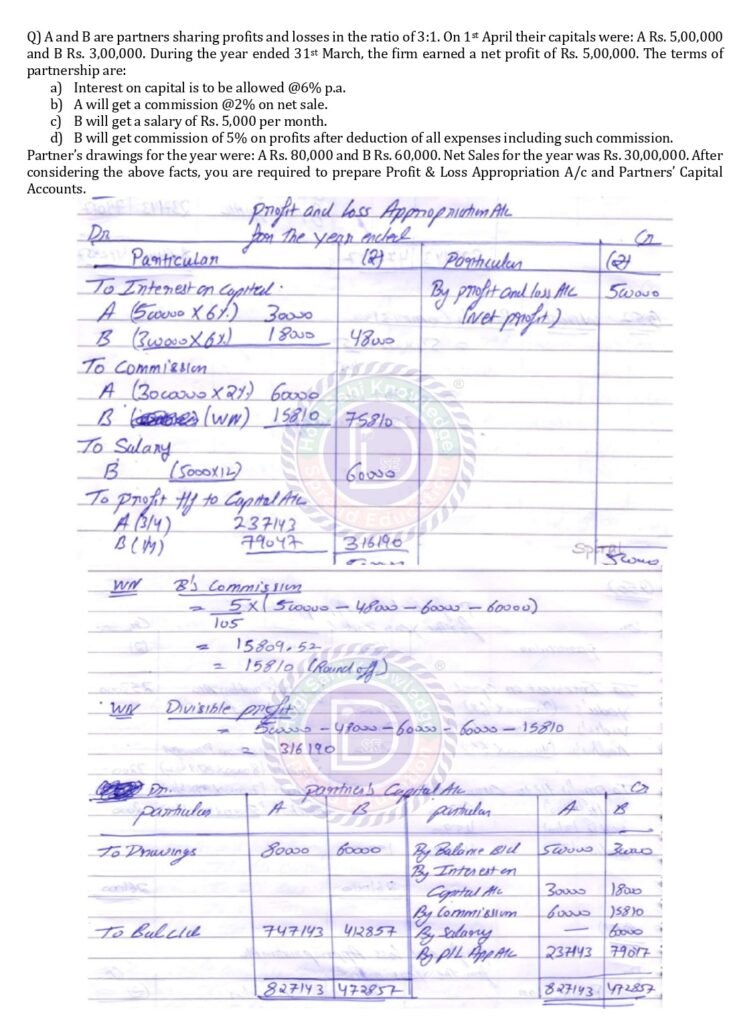 Q) A and B are partners sharing profits and losses in the ratio of 3:1. On 1st April their capitals were: A Rs. 5,00,000
and B Rs. 3,00,000. During the year ended 31st March, the firm earned a net profit of Rs. 5,00,000. The terms of
partnership are:
a) Interest on capital is to be allowed @6% p.a.
b) A will get a commission @2% on net sale.
c) B will get a salary of Rs. 5,000 per month.
d) B will get commission of 5% on profits after deduction of all expenses including such commission.
Partner's drawings for the year were: A Rs. 80,000 and B Rs. 60,000. Net Sales for the year was Rs. 30,00,000. After
considering the above facts, you are required to prepare Profit & Loss Appropriation A/c and Partners' Capital
Accounts.
Profit and Loss Appropriation A/c
Dr. for the year ended Cr
Particular (₹) Particular (₹)
To Interest on Capital: By profit and loss A/c 500000
A (500000 X 6%) 30000 (Net profit)
B (300000 X 6%) 18000 48000
To Commission
A (3000000 X 2%) 60000
B (WN) 15810 75810
To Salary
B (5000X12) 60000
To profit t/f to Capital A/c
A (3/4) 237143
B (1/4) 79047 316190
500000
WN B's Commission
= 5 X (500000 - 48000 - 60000 - 60000)
105
= 15809.52
= 15810 (Round off)
WN Divisible profit
= 500000 - 48000 - 60000 - 60000 - 15810
= 316190
Dr. Partner's Capital A/c Cr
particular A B particular A B
To Drawings 80000 60000 By Balance B/d 500000 300000
By Interest on
Capital A/c 30000 18000
By Commission 60000 15810
To Bal c/d 747143 412857 By Salary — 60000
By P/L App A/c 237143 79047
827143 472857 827143 472857